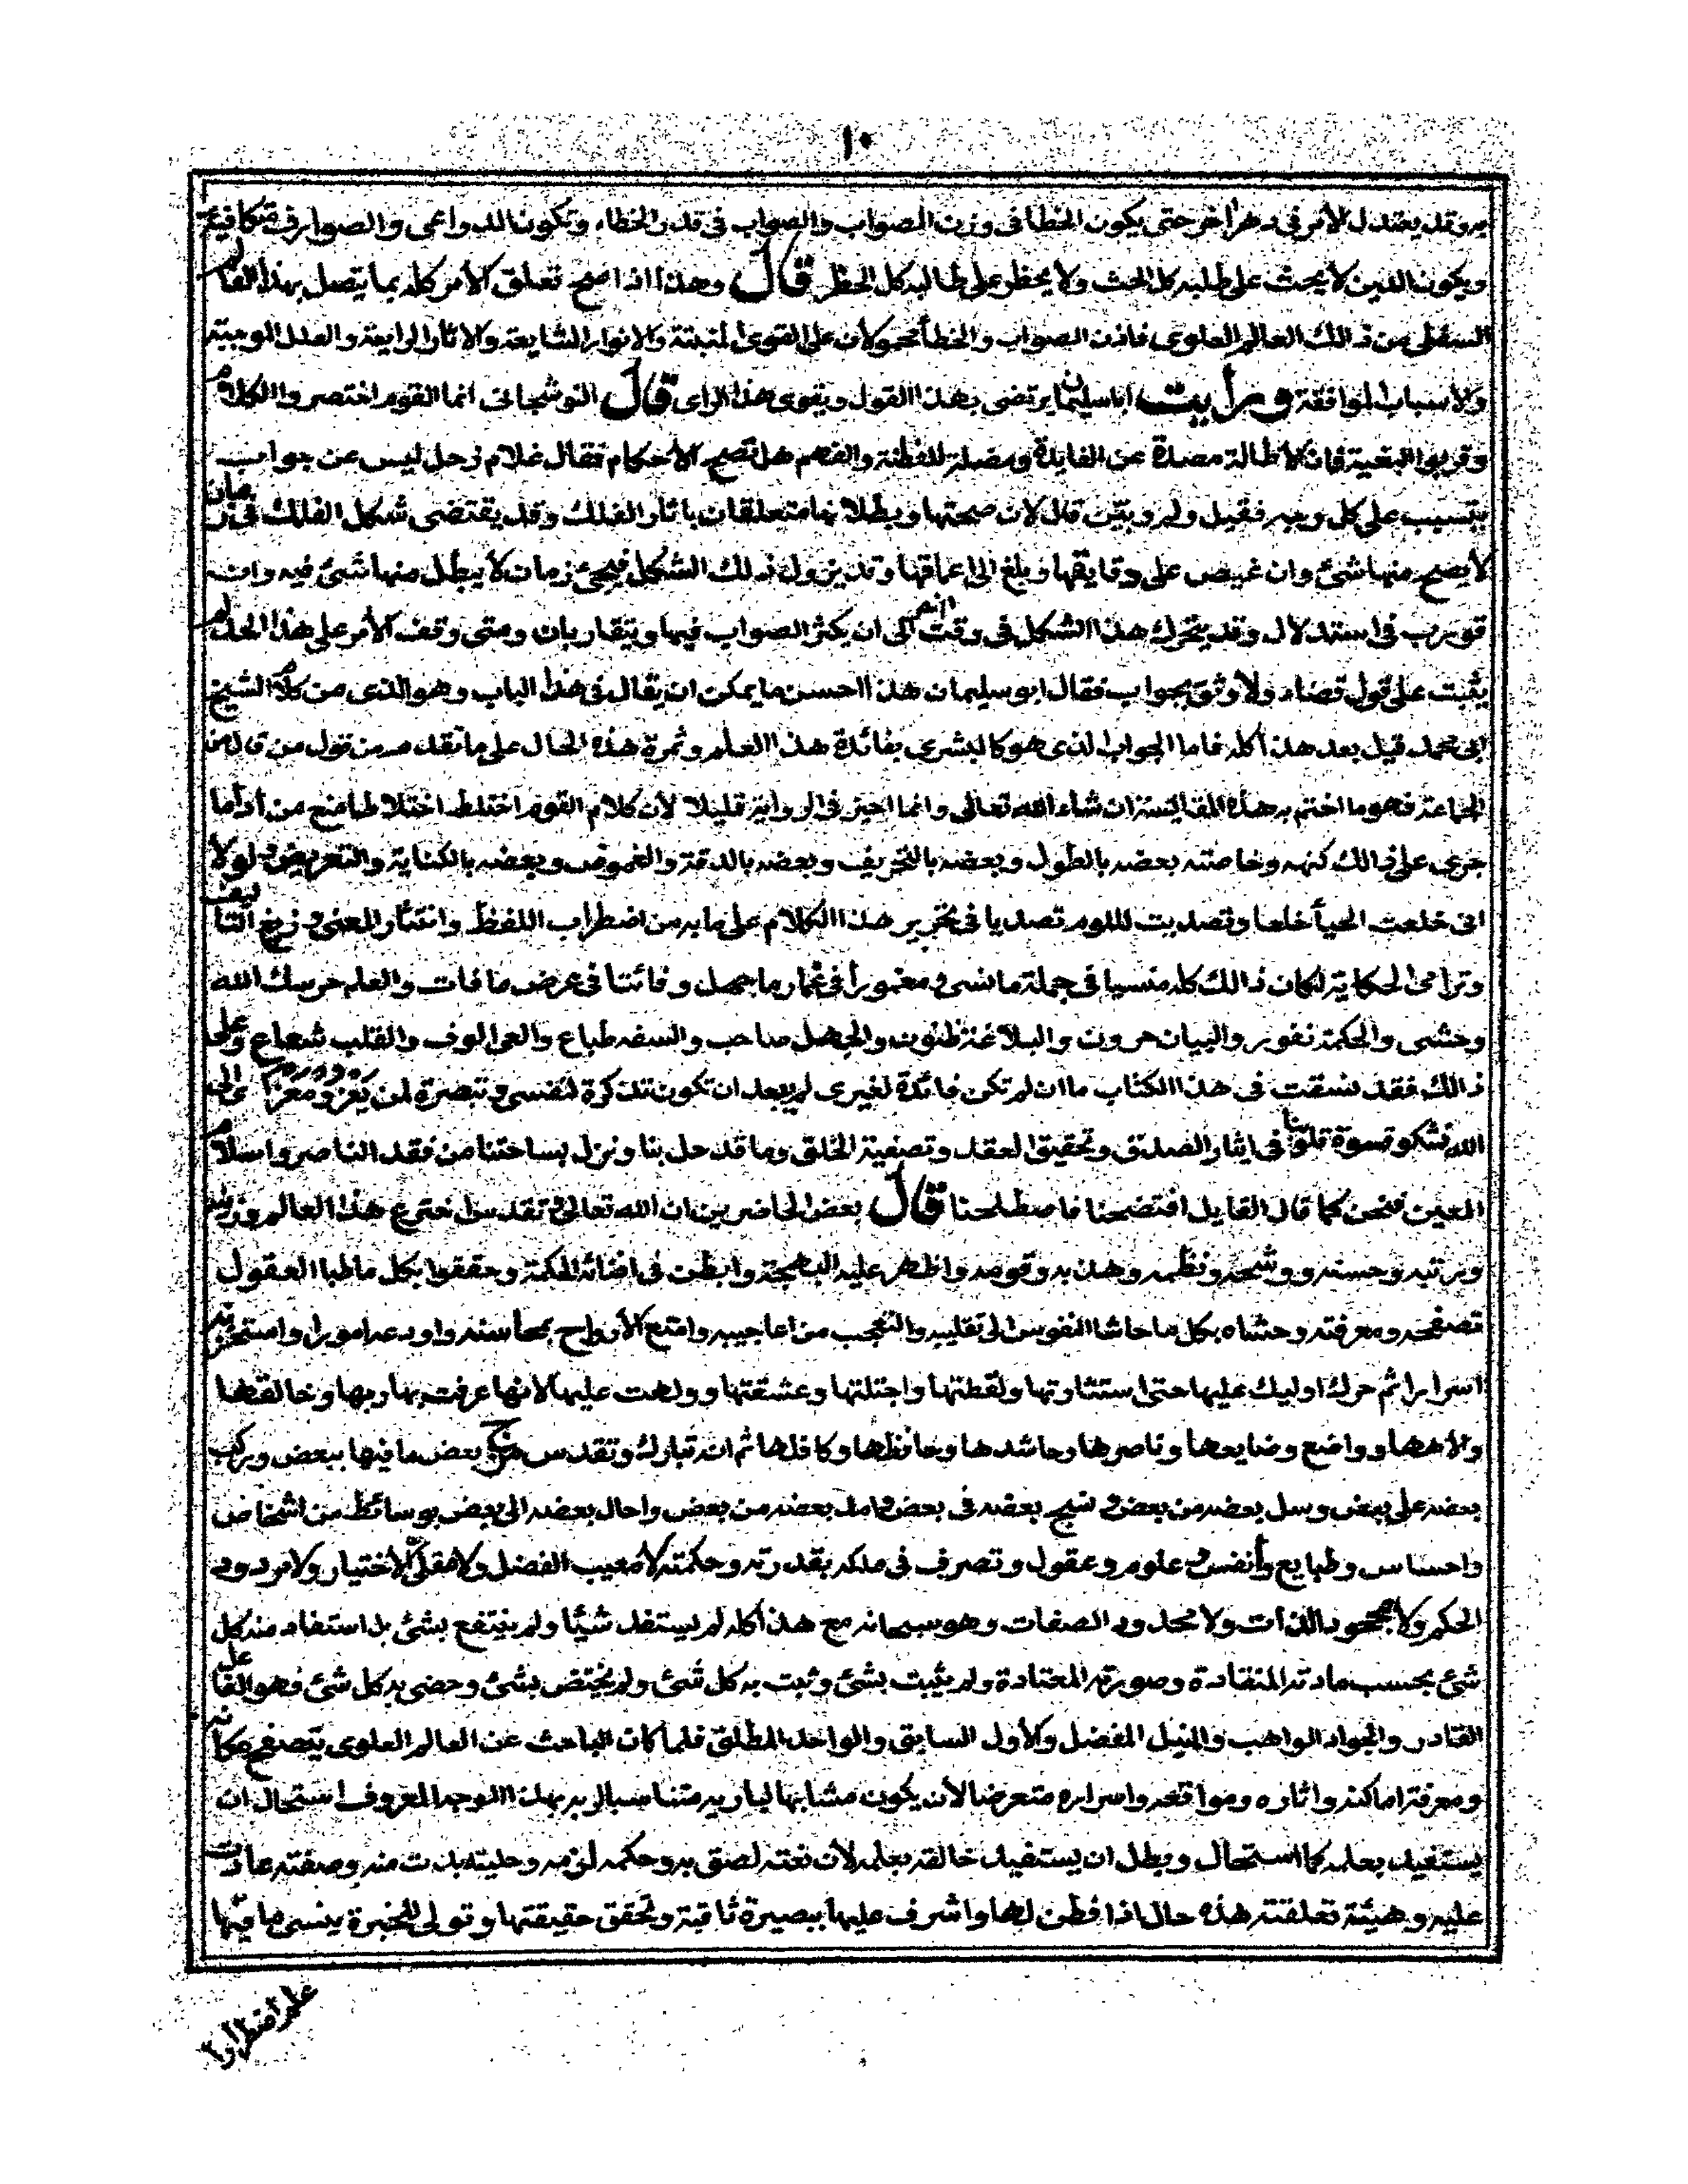 ١٠
به وقد يعتدل الأمر في دهر اخر حتى يكون الخطا في وزن الصواب والصواب في قدر الخطاء وتكون الدواعي والصوارف متكافية
ويكون الدين لا يحث على طلبه كل الحث ولا يحظر على طالبه كل الحظر قال وهذا اذا صح تعلق الأمر كله بما يتصل بهذا العالم
السفلى من ذالك العالم العلوى فاذن الصواب والخطأ محمولان على القوى المنبتة والانوار الشايعة والاثار الرايعة والعلل الموجبة
والاسباب الموافقة ورأيت اباسليمان يرتضى بهذا القول ويقوى هذا الراى قال النوشجانى انما القوم اختصروا الكلام
وقربوا البغية فان الاطالة مصدة عن الفايدة ومضلة للفطنة والفهم هل تصح الأحكام فقال غلام زحل ليس عن جواب
يتسبب على كل وجه فقيل ولم وبيّن قال لان صحتها وبطلانها متعلقان باثار الفلك وقد يقتضى شكل الفلك فى زمان
لا يصح منها شئ وان غيص على دقايقها وبلغ الى اعماقها وقد يزول ذلك الشكل فيجئ زمان لا يبطل منها شئ فيه وان
قورب فى استدلال وقد يتحرك هذا الشكل فى وقت آخر الى ان يكثر الصواب فيها ويتقاربان ومتى وقف الأمر على هذا الحد لم
يثبت على قول قضاء ولا وثق بجواب فقال ابو سليمان هذا احسن ما يمكن ان يقال فى هذا الباب وهو الذى من كلام الشيخ
ابى محمد قيل بعد هذا كله فاما الجواب الذى هو كالبشرى بفائدة هذا العلم وثمرة هذه الحال على ما تقدم من قول من قال من
الجماعة فهو ما اختم به هذه المقابسة ان شاء الله تعالى وانما اخبر فى الرواية قليلا لأن كلام القوم اختلط اختلاطا منع من أداما
جرى على ذالك كنهه وخاصته بعضه بالطول وبعضه بالتحريف وبعضه بالدقة والغموض وبعضه بالكناية والتعريض ولولا
انى خلعت الحيأ خلعا وتصديت للوم تصديا فى تحرير هذا الكلام على ما به من اضطراب اللفظ وانتثار المعنى وزيغ التاليف
وترامى الحكاية لكان ذالك كله منسيا فى جملة ما نسى ومغمورا فى غمار ما جهل وفائتا فى عرض ما فات والعلم حرسك الله
وحشى والحكمة نفور والبيان حرون والبلاغة ظنون والجهل صاحب والسفه طباع والعى الوف والقلب شعاع وعلى
ذالك فقد نسقت فى هذا الكتاب ما ان لم تكن فائدة لغيرى لم يبعد ان تكون تذكرة لنفسى وتبصرة لمن والى
الله نشكو قسوة قلوبنا فى ايثار الصدق وتحقيق العقد وتصفية الخلق وما قد حل بنا ونزل بساحتنا من فقد الناصر واسلام
المعين فنحن كما قال القايل افتضحنا فاصطلحنا قال بعض الحاضرين ان الله تعالى وتقدس اخترع هذا العالم وزينه
ورتبه وحسنه ووشحه ونظمه وهذبه وقومه واظهر عليه البهجة وابطن فى اضائه الحكمة وحققوا بكل ما طبا العقول
تصفحه ومعرفته وحشاه بكل ما حاشا النفوس الى تقليبه والتعجب من اعاجيبه وامتع الأرواح بمحاسنه واودعه امورا واستحزنه
اسرارا ثم حرك اوليك عليها حتى استثارتها ولقطتها واجتلتها وعشقتها وولهت عليها لانها عرفت بها ربها وخالقها
والاهها وواضع وضايعها وناصرها وحاشدها وحافظها وكافلها ثم انه تبارك وتقدس مزج بعض ما فيها ببعض وركب
بعضه على بعض وسل بعضه من بعض ونسج بعضه فى بعض وامد بعضه من بعض واحال بعضه الى بعض بوسائط من اشخاص
واحساس وطبايع وأنفس وعلوم وعقول وتصرف فى ملكه بقدرته وحكمته لا معيب الفضل ولا مقلى الأختيار ولا مردود
الحكم ولا مجحود الذات ولا محدود الصفات وهو سبحانه مع هذا كله لم يستفد شيئا ولم ينتفع بشئ بل استفاد منه كل
شئ بحسب مادته المنقادة وصورته المعتادة ولم يثبت بشئ وثبت به كل شئ ولم يختص بشئ وحضى به كل شئ فهو الفاعل
القادر والجواد الواهب والمنيل المفضل والأول السابق والواحد المطلق فلما كان الباحث عن العالم العلوى يتصفح مكانه
ومعرفة اماكنه واثاره ومواقعه واسراره متعرضا لأن يكون مشابها لباريه متناسبا لربه بهذا الوجه المعروف استحال ان
يستفيد بعلمه كما استحال وبطل ان يستفيد خالقه بعلمه لأن نعته لصق به وحكمه لزمه وحليته بدت منه وصفته عادت
عليه وهيئة تعلقته هذه حال اذا فطن لها واشرف عليها ببصيرة ثاقبة وتحقق حقيقتها وتولى للخبرة ينسى ما فيها
علم اضطرارا